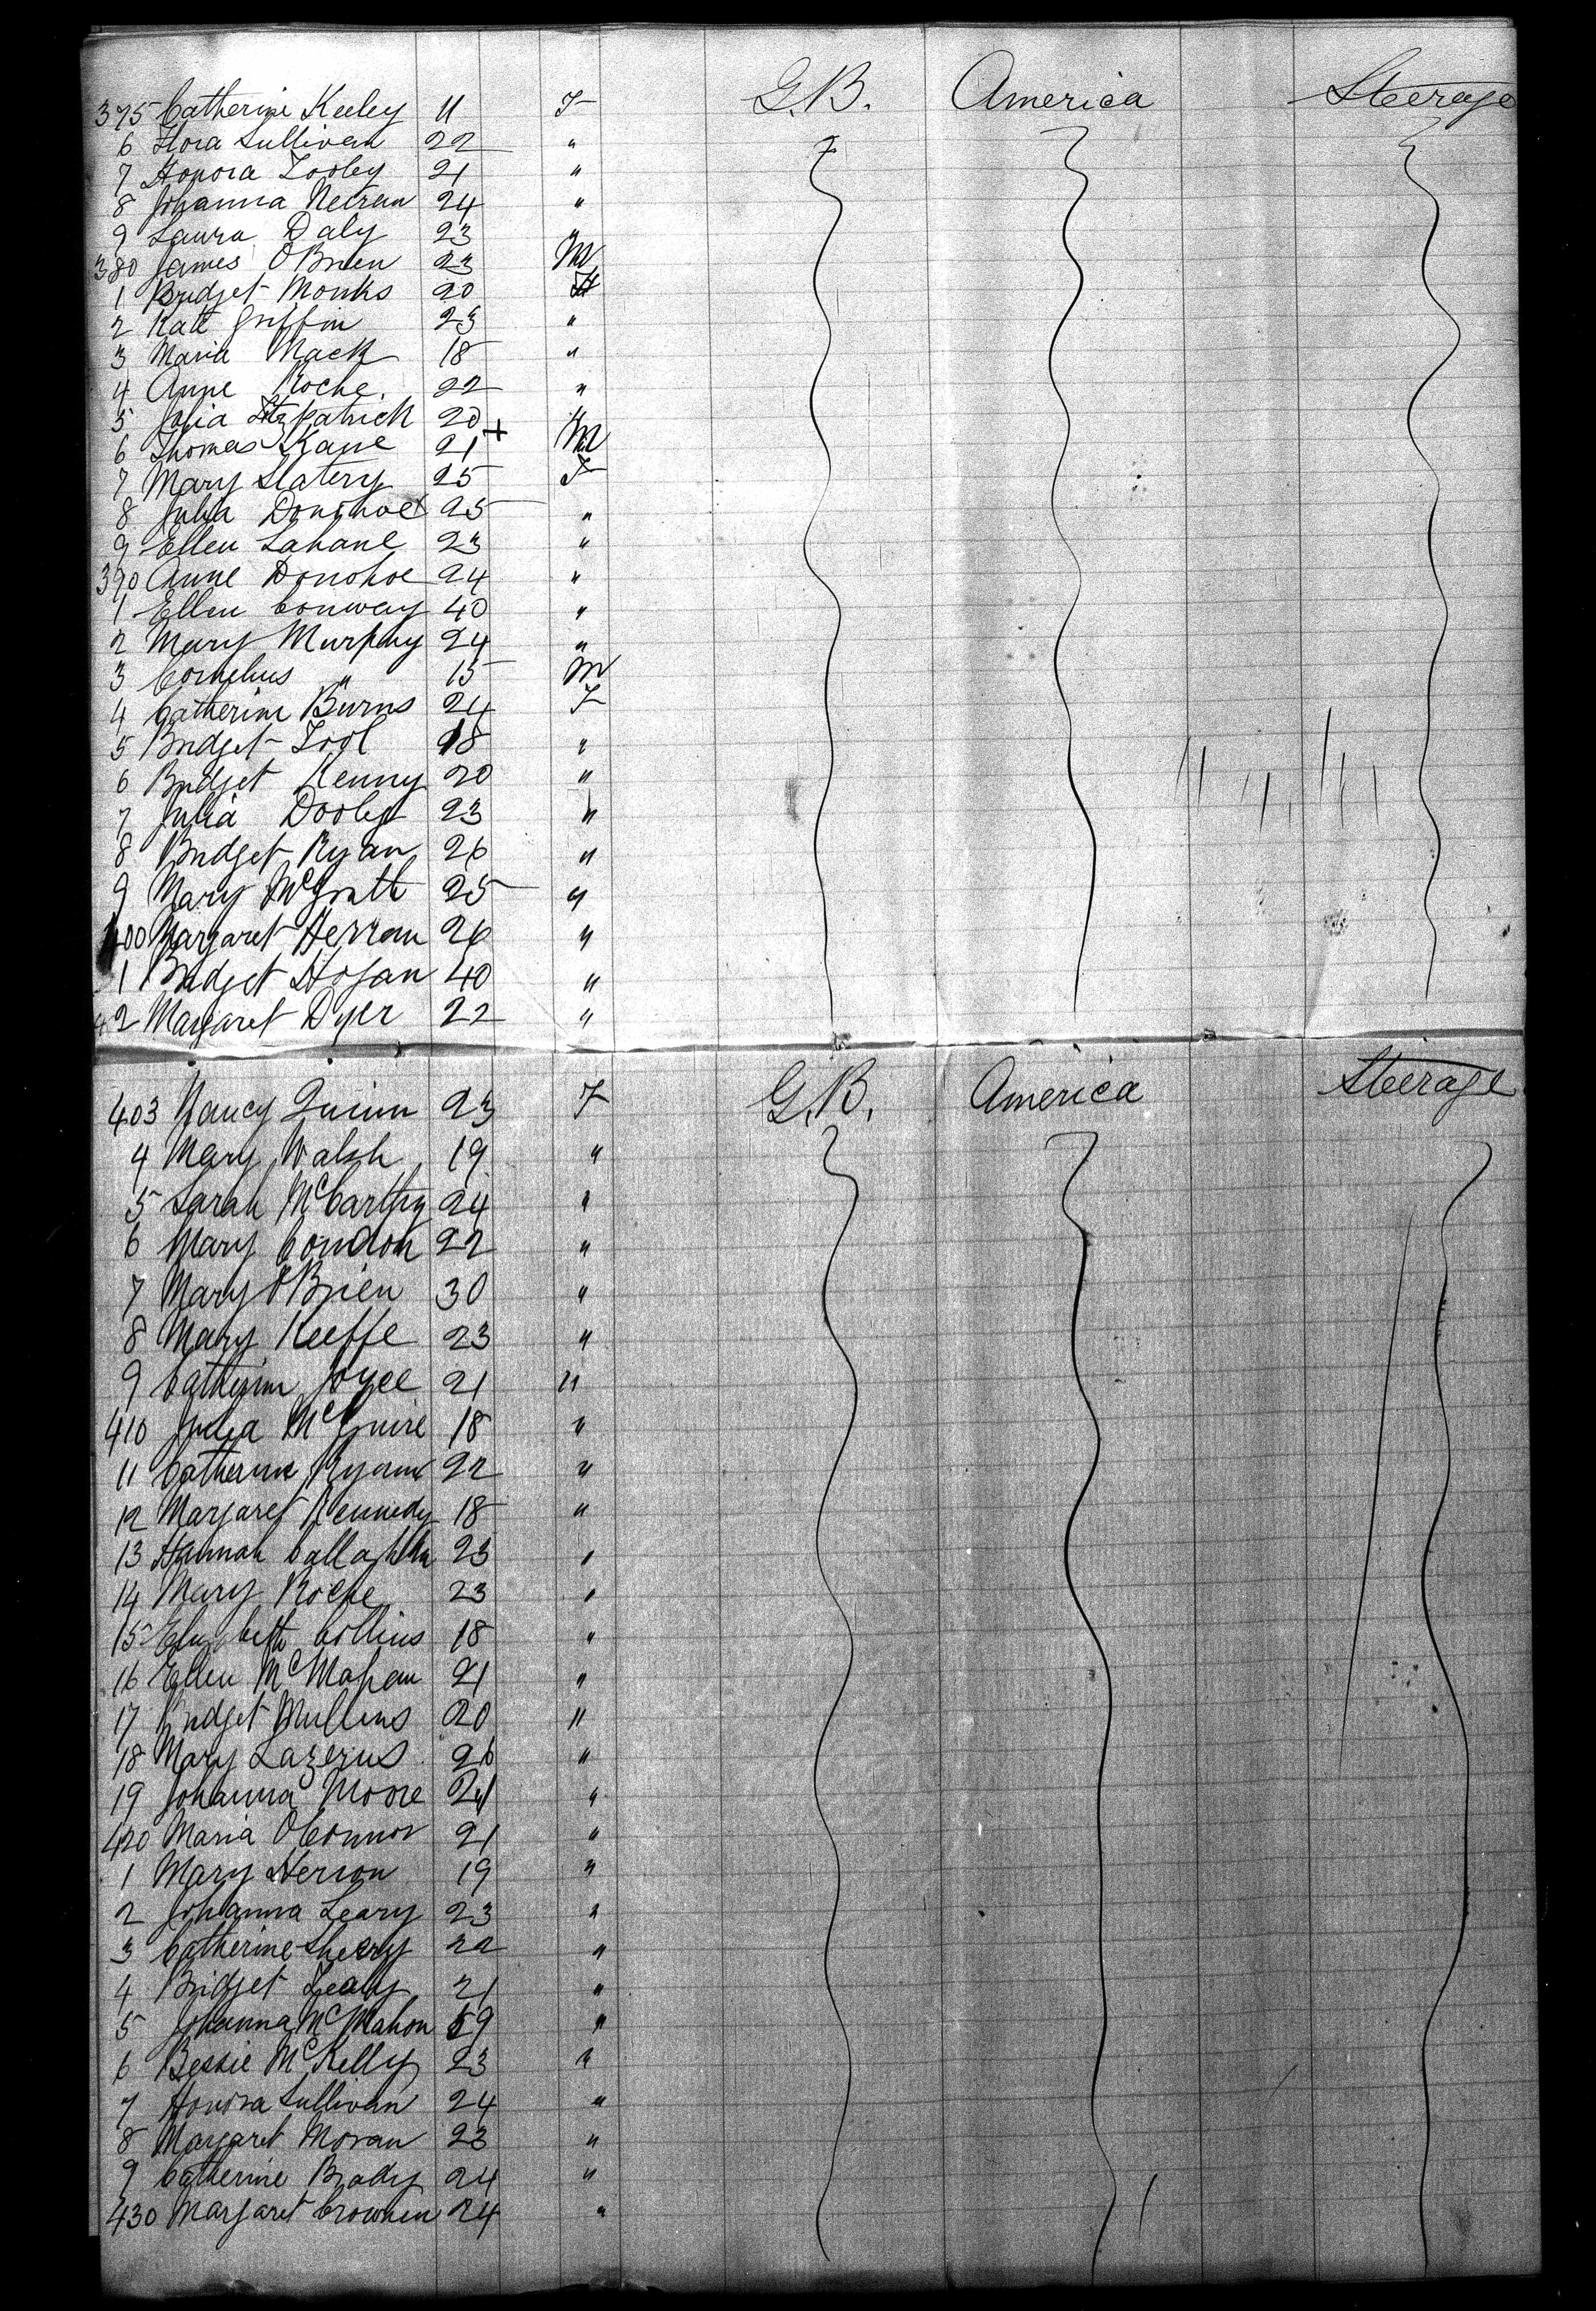 375 Catherine Keeley 11 F G.B. America Steerage
6 Flora Sullivan 22 "
7 Honora Tooley 21 "
8 Johanna 24 "
9 Laura Daly 23 "
380 James O'Brien 23 M
1 Bridget Monks 20 F
2 Kate Griffin 23 "
3 Maria Mack 18 "
4 Anne Roche. 22 "
5 Julia Fitzpatrick 20 "
6 Thomas Kane 21 + M
7 Mary Slatery 25 F
8 Julia Donohoe 25 "
9 Ellen Lahane 23 "
390 Anne Donohoe 24 "
1 Ellen Conway 40 "
2 Mary Murphy 24 "
3 Cornelius " 15 M
4 Catherine Burns 24 F
5 Bridget Tool 18 "
6 Bridget Kenny 20 "
7 Julia Dooley 23 "
8 Bridget Ryan 26 "
9 Mary McGrath 25 "
400 Margaret Herran 26 "
1 Bridget Hogan 40 "
42 Margaret Dyer 22 "
403 Nancy Quinn 23 F G.B. America Steerage
4 Mary Walsh 19 "
5 Sarah McCarthy 24 "
6 Mary Condon 22 "
7 Mary O'Brien 30 "
8 Mary Keeffe 23 "
9 Catherine Joyce 21 "
410 Julia McGuire 18 "
11 Catherine Ryan 22 "
12 Margaret Kennedy 18 "
13 Hannah Callaghan 23 "
14 Mary Roche 23 "
15 Elizabeth Collins 18 "
16 Ellen McMahan 21 "
17 Bridget Mullins 20 "
18 Mary Lazerus 26 "
19 Johanna Moore 24 "
420 Maria O'Connor 21 "
1 Mary Herron 19 "
2 Johanna Leary 23 "
3 Catherine Sheery 22 "
4 Bridget Leahy 21 "
5 Johanna McMahon 59 "
6 Bessie McKelly 23 "
7 Honora Sullivan 24 "
8 Margaret Moran 23 "
9 Catherine Brady 24 "
430 Margaret Crownen 24 "